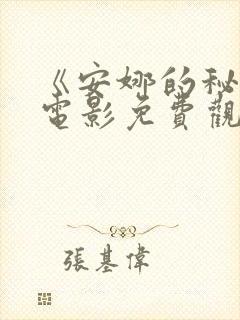 《安娜的秘
電影免費觀
張基偉